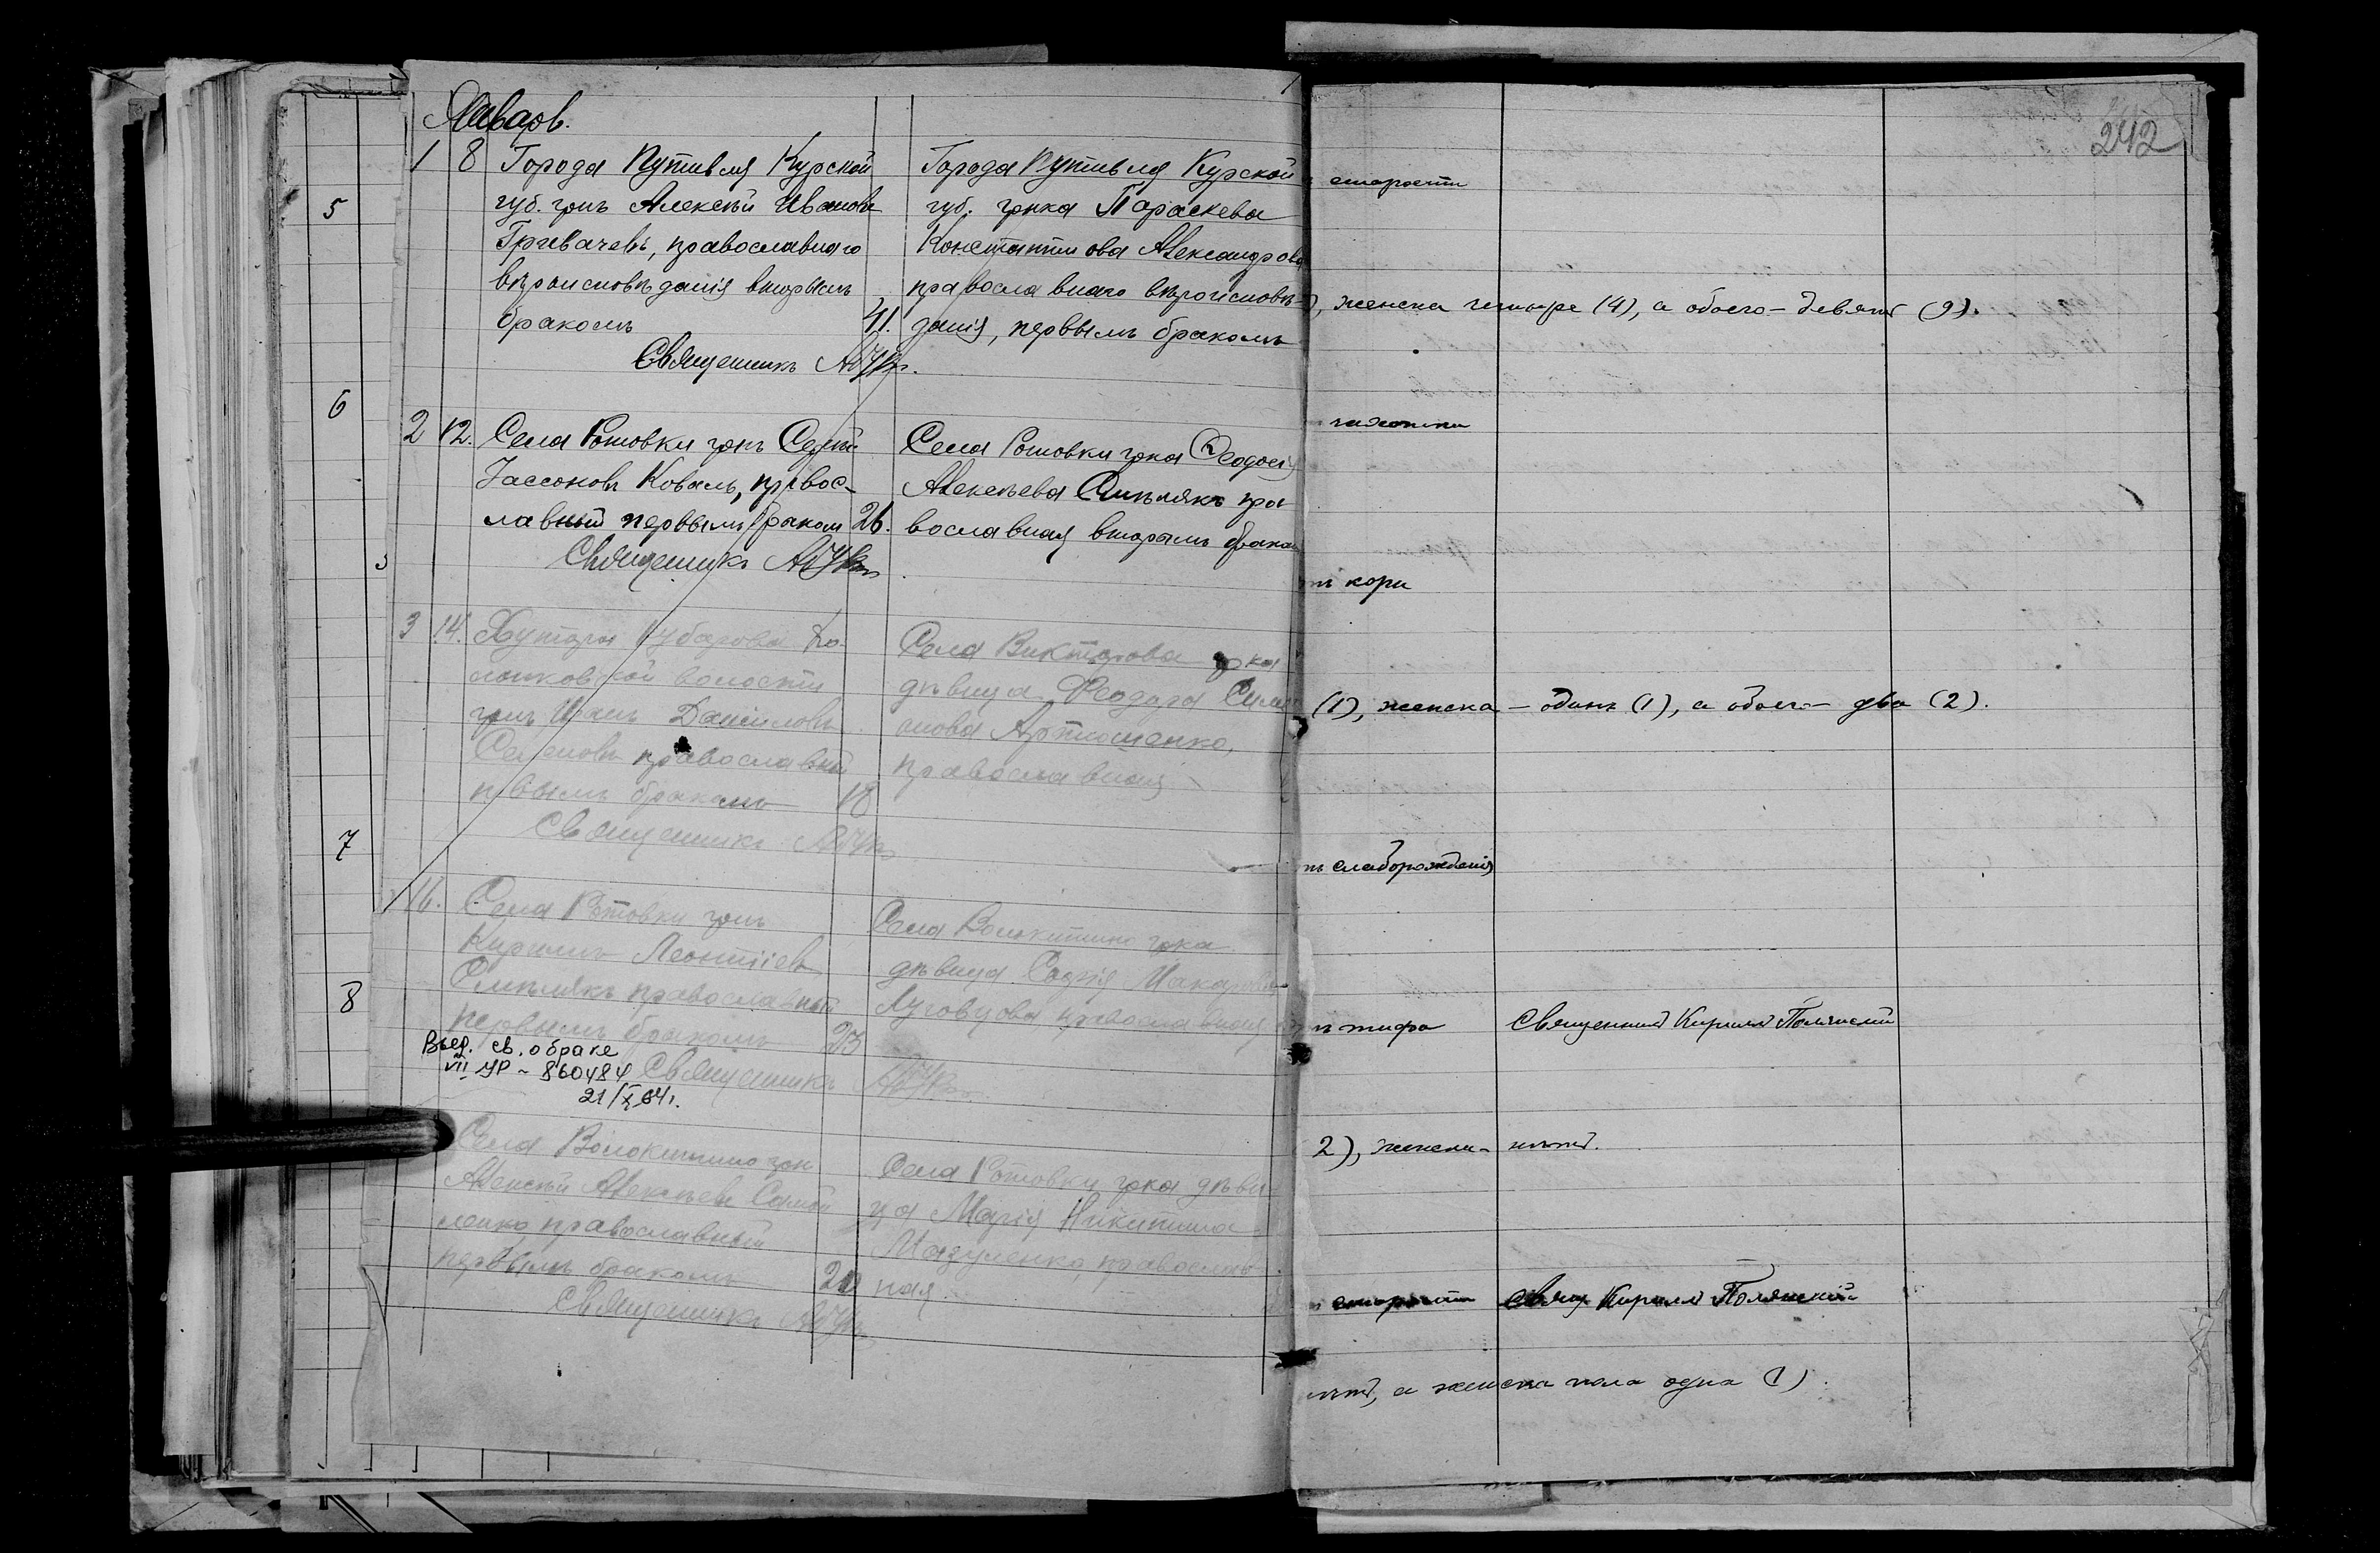 Январь.
1 8 Города Путивля Курской
губ. грнъ Алексѣй Ивановъ
Грибачевъ, православнаго
вѣроисповѣданія вторымъ
бракомъ 41.
Города Путивля Курской
губ. грнка Параскева
Константинова Александрова
православнаго вѣроисповѣ-
данія, первымъ бракомъ
Священникъ
2 12. Села Ротовки грнъ Сергій
Іассоновъ Коваль, правос-
лавный первымъ бракомъ 26.
Села Ротовки грка Ѳеодосія
Алексѣева Симлякъ пра
вославная вторымъ бракомъ
Священникъ
3 14. Хутора Губарова
волости
грнъ Иванъ Даниловъ
Семеновъ православный
первымъ бракомъ 18
Села Викторова грка
дѣвица Ѳеодора Симо
нова Артюшенко,
православная
Священникъ
16. Села Ротовки грнъ
Кириллъ Леонтіевъ
Симлякъ православный
первымъ бракомъ 23
Села Волокитино грка
дѣвица Софія Макарова
Луговцова православная
Выд. св. о браке
VII УР - 860484 Священникъ
21/X 64 г.
Села Волокитино грн
Алексѣй Алексѣевъ Самой
ленко православный
первымъ бракомъ 20
Села Ротовки грка дѣви-
ца Марія Никитина
Мазуленко, православ-
ная
Священникъ
5
6
7
8
242
старости
, женска четыре (4), а обоего - девять (9).
чахотки
кори
(1), женска - одинъ (1), а обоего - два (2).
слаборожденія
тифа Священникъ Кириллъ Полянскій
2), женска - нѣтъ.
старости Свящ Кириллъ Полянскій
нѣтъ, а женска пола одна (1).